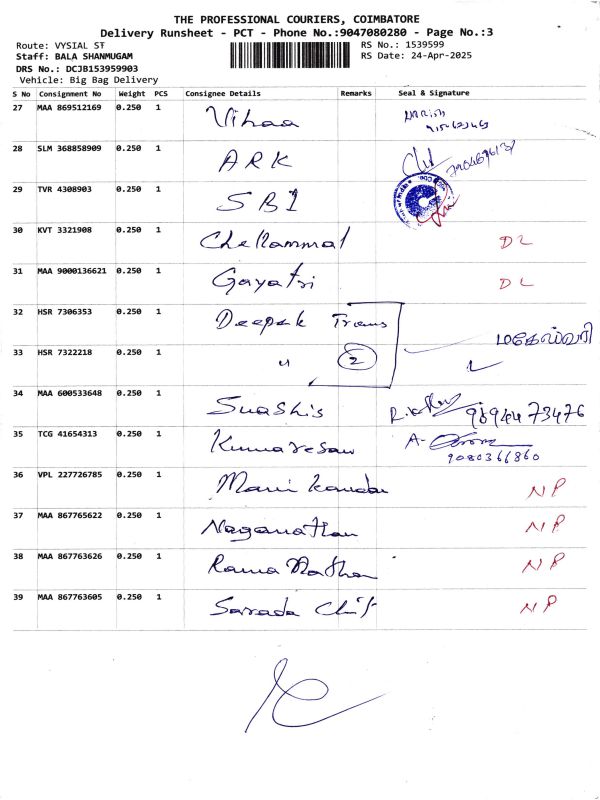 THE PROFESSIONAL COURIERS, COIMBATORE
Delivery Runsheet - PCT - Phone No.:9047080280 - Page No.:3
Route: VYSIAL ST
RS No.: 1539599
Staff: BALA SHANMUGAM
RS Date: 24-Apr-2025
DRS No.: DCJB153959903
Vehicle: Big Bag Delivery
S No Consignment No Weight PCS Consignee Details Remarks Seal & Signature
27 MAA 869512169 0.250 1 Vihaa
28 SLM 368858909 0.250 1 ARK
29 TVR 4308903 0.250 1 SBI
30 KVT 3321908 0.250 1 Chellammal DL
31 MAA 9000136621 0.250 1 Gayatri DL
32 HSR 7306353 0.250 1 Deepak Trans
மகேஸ்வரி
33 HSR 7322218 0.250 1 " 2
34 MAA 600533648 0.250 1 Suashis 98944 73476
35 TCG 41654313 0.250 1 Kumaresan A-
9080366860
36 VPL 227726785 0.250 1 Mani kandan NP
37 MAA 867765622 0.250 1 Naganathan NP
38 MAA 867763626 0.250 1 Rama Nathan NP
39 MAA 867763605 0.250 1 Sarada Chit NP